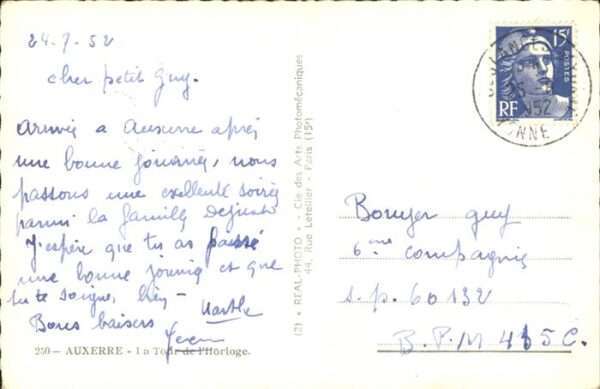 24.7.52
cher petit Guy.
Arrivés a Auxerre après
une bonne journée, nous
passons une exellente soirée
parmi la famille
J'espère que tu as passé
une bonne journée et que
tu te soigne, bien
Bons baisers
250 - AUXERRE - La Tour de l'Horloge.
(2) • REAL-PHOTO • - Cie des Arts Photomécaniques
44, Rue Letellier - Paris (15e)
15F
POSTES
RF
1952
YONNE
Bouyer guy
6ème compagnie
s.p. 60132
B.P.M 415 C.